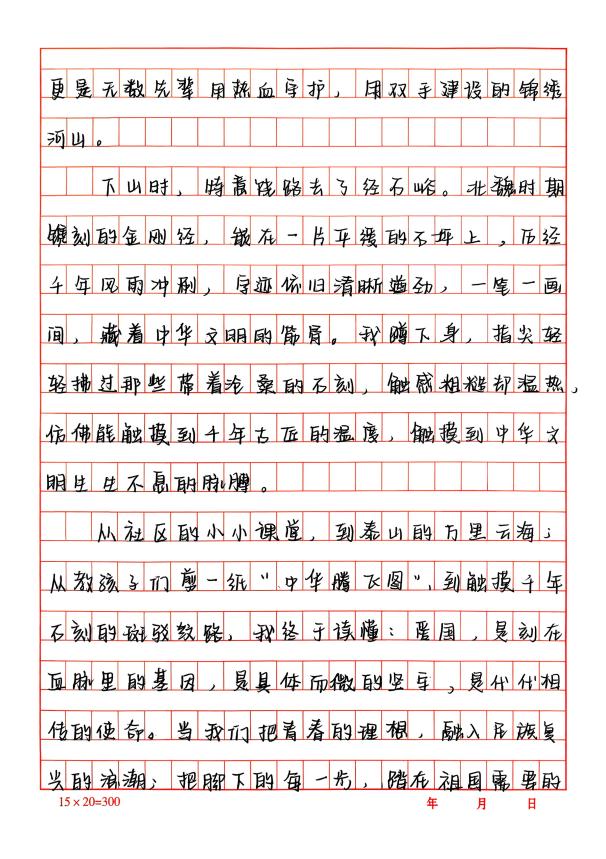 更是无数先辈用热血守护，用双手建设的锦绣
河山。
下山时，特意绕路去了经石峪。北魏时期
镌刻的金刚经，嵌在一片平缓的石坪上，历经
千年风雨冲刷，字迹依旧清晰遒劲，一笔一画
间，藏着中华文明的筋骨。我蹲下身，指尖轻
轻拂过那些带着沧桑的石刻，触感粗糙却温热，
仿佛能触摸到千年古匠的温度，触摸到中华文
明生生不息的脉搏。
从社区的小小课堂，到泰山的万里云海；
从教孩子们剪一纸“中华腾飞图”，到触摸千年
石刻的斑驳纹路，我终于读懂：爱国，是刻在
血脉里的基因，是具体而微的坚守，是代代相
传的使命。当我们把青春的理想，融入民族复
兴的浪潮；把脚下的每一步，踏在祖国需要的
15×20=300 年 月 日